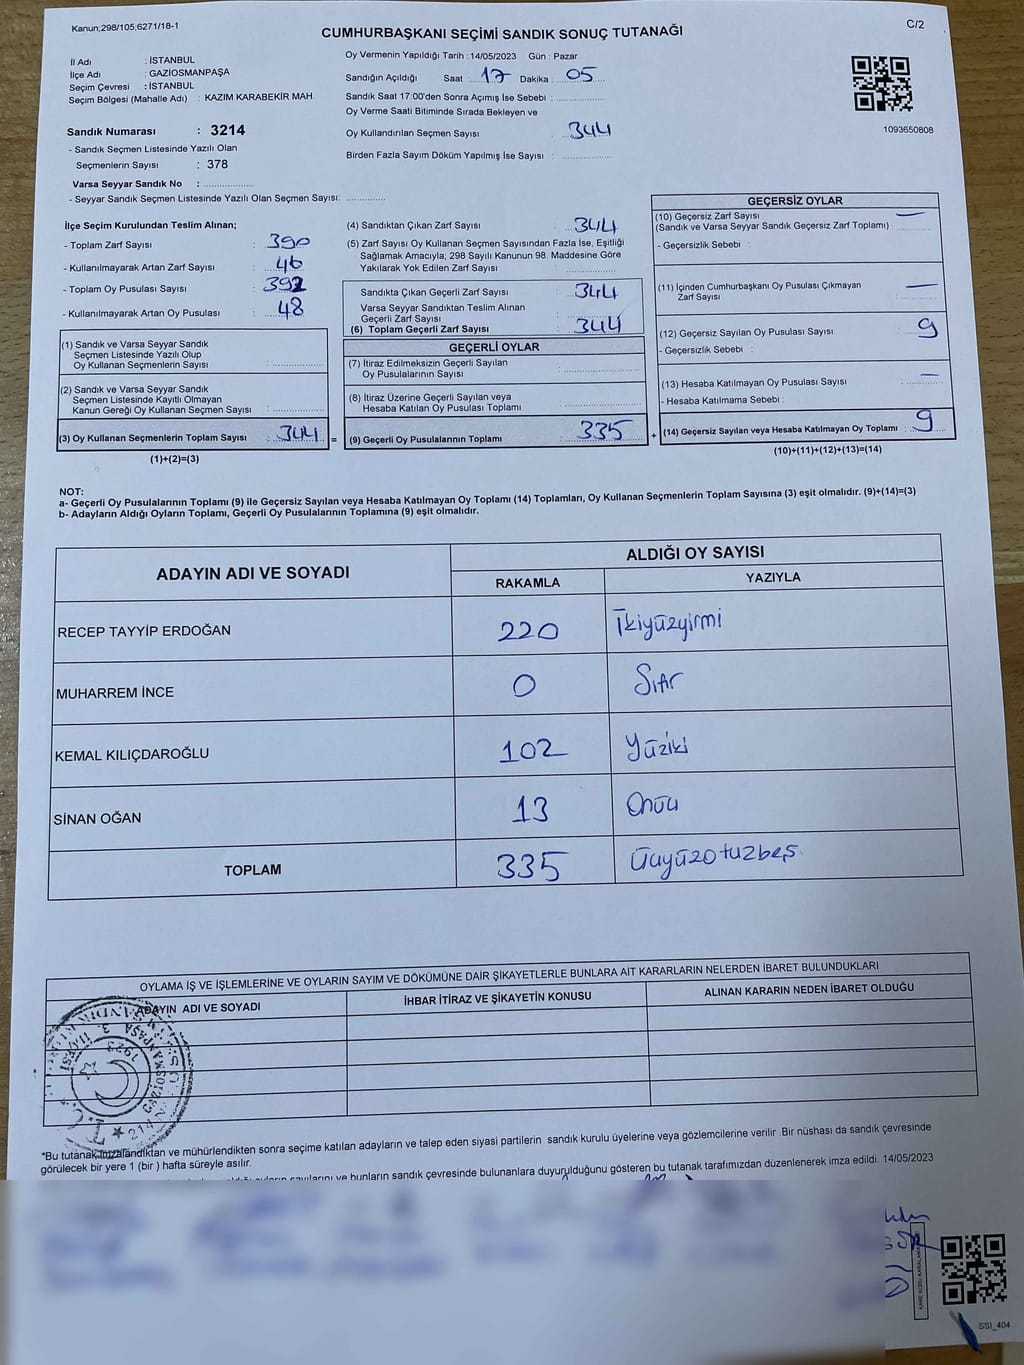 Kanun;298/105;6271/18-1
C/2
CUMHURBAŞKANI SEÇİMİ SANDIK SONUÇ TUTANAĞI
İl Adı : İSTANBUL
İlçe Adı : GAZİOSMANPAŞA
Seçim Çevresi : İSTANBUL
Seçim Bölgesi (Mahalle Adı) : KAZIM KARABEKİR MAH.
Sandık Numarası : 3214
- Sandık Seçmen Listesinde Yazılı Olan
Seçmenlerin Sayısı : 378
Varsa Seyyar Sandık No :
- Seyyar Sandık Seçmen Listesinde Yazılı Olan Seçmen Sayısı:
Oy Vermenin Yapıldığı Tarih : 14/05/2023 Gün : Pazar
Sandığın Açıldığı Saat : 17 Dakika : 05
Sandık Saat 17:00'den Sonra Açımış İse Sebebi :
Oy Verme Saati Bitiminde Sırada Bekleyen ve
Oy Kullandırılan Seçmen Sayısı : 344
Birden Fazla Sayım Döküm Yapılmış İse Sayısı :
1093650808
İlçe Seçim Kurulundan Teslim Alınan;
- Toplam Zarf Sayısı : 390
- Kullanılmayarak Artan Zarf Sayısı : 46
- Toplam Oy Pusulası Sayısı : 392
- Kullanılmayarak Artan Oy Pusulası : 48
(1) Sandık ve Varsa Seyyar Sandık
Seçmen Listesinde Yazılı Olup
Oy Kullanan Seçmenlerin Sayısı :
(2) Sandık ve Varsa Seyyar Sandık
Seçmen Listesinde Kayıtlı Olmayan
Kanun Gereği Oy Kullanan Seçmen Sayısı :
(3) Oy Kullanan Seçmenlerin Toplam Sayısı : 344 =
(1)+(2)=(3)
(4) Sandıktan Çıkan Zarf Sayısı : 344
(5) Zarf Sayısı Oy Kullanan Seçmen Sayısından Fazla İse, Eşitliği
Sağlamak Amacıyla; 298 Sayılı Kanunun 98. Maddesine Göre
Yakılarak Yok Edilen Zarf Sayısı :
Sandıkta Çıkan Geçerli Zarf Sayısı : 344
Varsa Seyyar Sandıktan Teslim Alınan
Geçerli Zarf Sayısı :
(6) Toplam Geçerli Zarf Sayısı : 344
GEÇERLİ OYLAR
(7) İtiraz Edilmeksizin Geçerli Sayılan
Oy Pusulalarının Sayısı :
(8) İtiraz Üzerine Geçerli Sayılan veya
Hesaba Katılan Oy Pusulası Toplamı :
(9) Geçerli Oy Pusulalarının Toplamı : 335 +
GEÇERSİZ OYLAR
(10) Geçersiz Zarf Sayısı —
(Sandık ve Varsa Seyyar Sandık Geçersiz Zarf Toplamı) :
- Geçersizlik Sebebi :
(11) İçinden Cumhurbaşkanı Oy Pusulası Çıkmayan —
Zarf Sayısı :
(12) Geçersiz Sayılan Oy Pusulası Sayısı : 9
- Geçersizlik Sebebi :
(13) Hesaba Katılmayan Oy Pusulası Sayısı : —
- Hesaba Katılmama Sebebi :
(14) Geçersiz Sayılan veya Hesaba Katılmayan Oy Toplamı : 9
(10)+(11)+(12)+(13)=(14)
NOT:
a- Geçerli Oy Pusulalarının Toplamı (9) ile Geçersiz Sayılan veya Hesaba Katılmayan Oy Toplamı (14) Toplamları, Oy Kullanan Seçmenlerin Toplam Sayısına (3) eşit olmalıdır. (9)+(14)=(3)
b- Adayların Aldığı Oyların Toplamı, Geçerli Oy Pusulalarının Toplamına (9) eşit olmalıdır.
ADAYIN ADI VE SOYADI
ALDIĞI OY SAYISI
RAKAMLA YAZIYLA
RECEP TAYYİP ERDOĞAN 220 İkiyüzyirmi
MUHARREM İNCE 0 Sıfır
KEMAL KILIÇDAROĞLU 102 Yüziki
SİNAN OĞAN 13 Onüç
TOPLAM 335 Üçyüzotuzbeş
OYLAMA İŞ VE İŞLEMLERİNE VE OYLARIN SAYIM VE DÖKÜMÜNE DAİR ŞİKAYETLERLE BUNLARA AİT KARARLARIN NELERDEN İBARET BULUNDUKLARI
ADAYIN ADI VE SOYADI İHBAR İTİRAZ VE ŞİKAYETİN KONUSU ALINAN KARARIN NEDEN İBARET OLDUĞU
T.C.
GAZİOSMANPAŞA 3. İLÇESİ
1923
214
*Bu tutanak imzalandıktan ve mühürlendikten sonra seçime katılan adayların ve talep eden siyasi partilerin sandık kurulu üyelerine veya gözlemcilerine verilir .Bir nüshası da sandık çevresinde
görülecek bir yere 1 (bir ) hafta süreyle asılır.
sayılarını ve bunların sandık çevresinde bulunanlara duyurulduğunu gösteren bu tutanak tarafımızdan düzenlenerek imza edildi. 14/05/2023
SSI_404